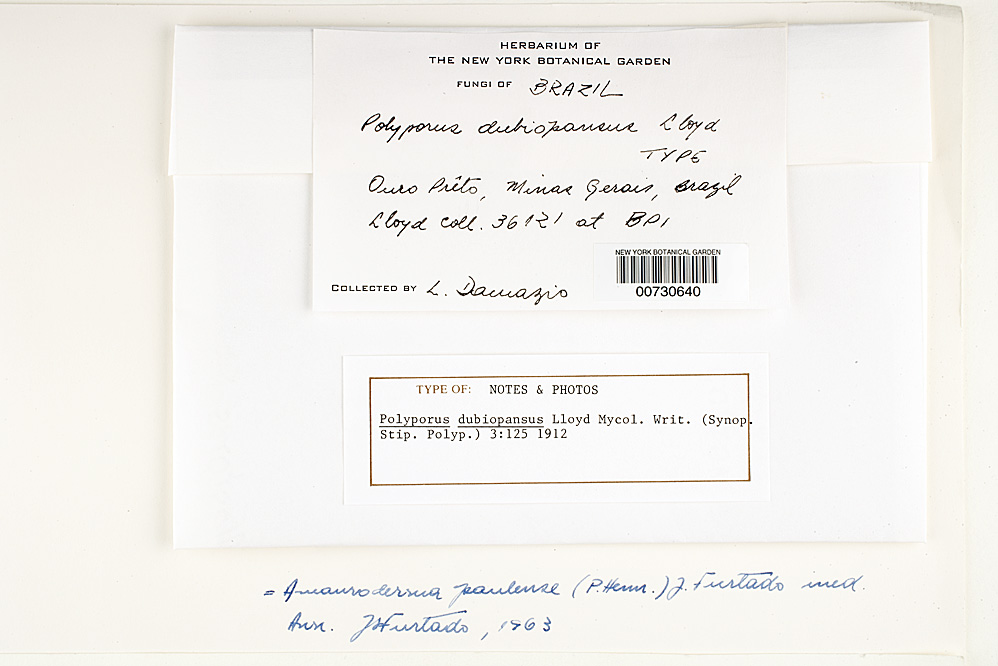 HERBARIUM OF
THE NEW YORK BOTANICAL GARDEN
FUNGI OF BRAZIL
Polyporus dubiopansus Lloyd
TYPE
Ouro Prêto, Minas Gerais, Brazil
Lloyd coll. 36121 at BPI
NEW YORK BOTANICAL GARDEN
00730640
COLLECTED BY L. Damazio
TYPE OF: NOTES & PHOTOS
Polyporus dubiopansus Lloyd Mycol. Writ. (Synop.
Stip. Polyp.) 3:125 1912
= Amauroderma paulense (P.Henn.) J. Furtado ined.
Ann. JSFurtado, 1963